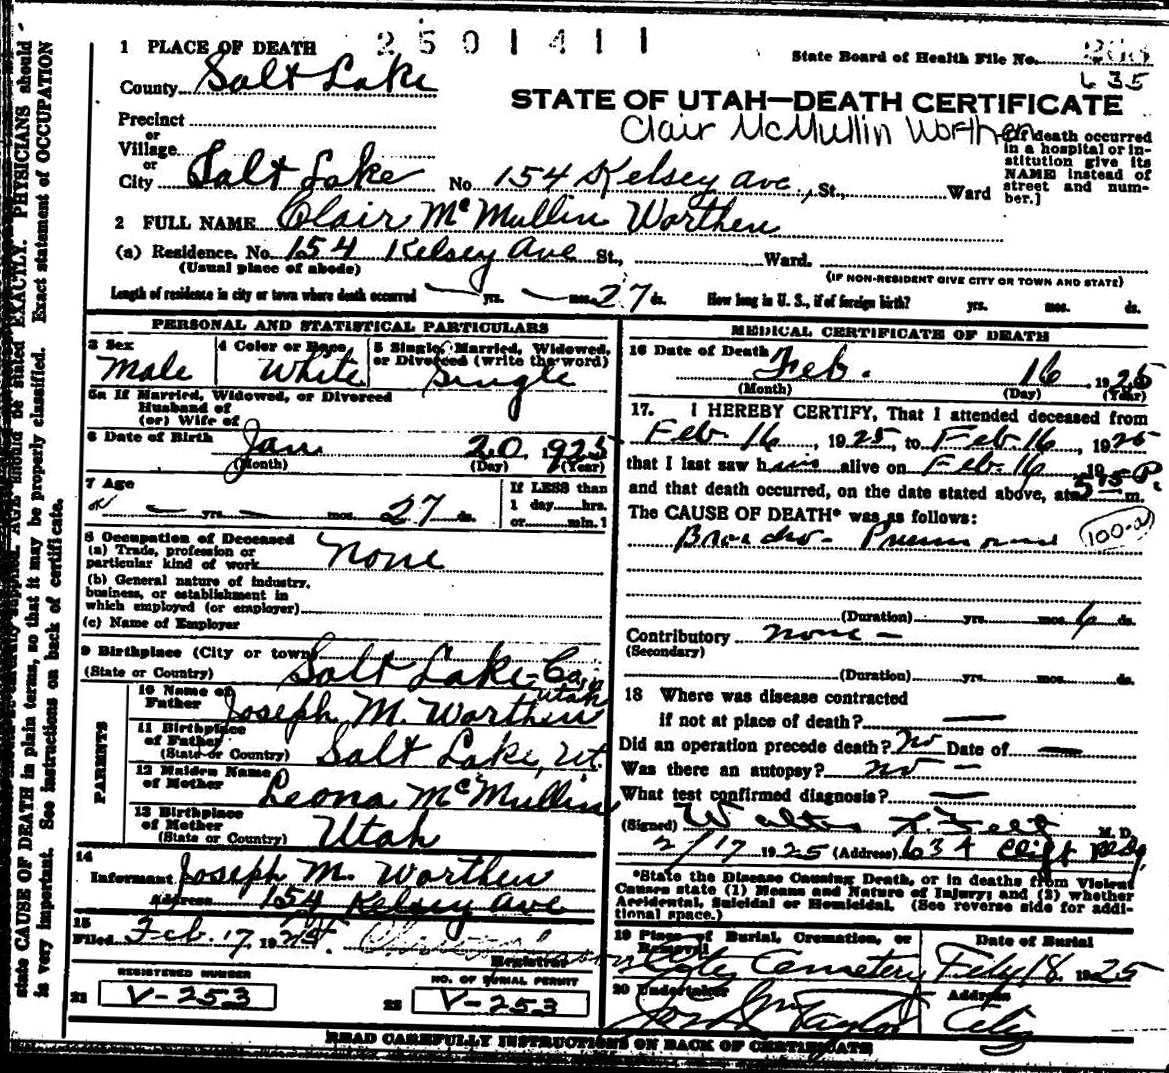 state CAUSE OF DEATH in plain terms, so that it may be properly classified. Exact statement of OCCUPATION
is very important. See instructions on back of certificate.
1 PLACE OF DEATH 2501411
State Board of Health File No.
635
County Salt Lake
STATE OF UTAH—DEATH CERTIFICATE
Clair McMullin Worthen
Precinct
or
Village
or
City Salt Lake No. 154 Kelsey Ave, St., Ward
[If death occurred
in a hospital or in-
stitution give its
NAME instead of
street and num-
ber.]
2 FULL NAME Clair McMullin Worthen
(a) Residence. No. 154 Kelsey Ave St., Ward.
(Usual place of abode) (IF NON-RESIDENT GIVE CITY OR TOWN AND STATE)
Length of residence in city or town where death occurred — yrs. — mos. 27 ds. How long in U. S., if of foreign birth? yrs. mos. ds.
PERSONAL AND STATISTICAL PARTICULARS
3 Sex Male
4 Color or Race White
5 Single, Married, Widowed,
or Divorced (write the word)
Single
5a If Married, Widowed, or Divorced
Husband of
(or) Wife of
6 Date of Birth Jan 20, 1925
(Month) (Day) (Year)
7 Age — yrs. — mos. 27 ds.
If LESS than
1 day hrs.
or min. 1
8 Occupation of Deceased
(a) Trade, profession or
particular kind of work None
(b) General nature of industry,
business, or establishment in
which employed (or employer)
(c) Name of Employer
9 Birthplace (City or town)
(State or Country) Salt Lake
Utah
PARENTS
10 Name of
Father Joseph M. Worthen
11 Birthplace
of Father
(State or Country) Salt Lake, Ut.
12 Maiden Name
of Mother Leona McMullin
13 Birthplace
of Mother
(State or Country) Utah
14
Informant Joseph M. Worthen
Address 154 Kelsey Ave
15
Filed Feb. 17, 19
Registrar
REGISTERED NUMBER
21 V-253
NO. OF BURIAL PERMIT
22 V-253
MEDICAL CERTIFICATE OF DEATH
16 Date of Death
Feb. 16, 1925
(Month) (Day) (Year)
17. I HEREBY CERTIFY, That I attended deceased from
Feb 16, 1925, to Feb 16, 1925
that I last saw him alive on Feb-16 19
and that death occurred, on the date stated above, at m.
The CAUSE OF DEATH* was as follows:
Broncho- Pneumonia
(Duration) yrs. mos. 6 ds.
Contributory none —
(Secondary)
(Duration) yrs. mos. ds.
18 Where was disease contracted
if not at place of death? —
Did an operation precede death? No Date of —
Was there an autopsy? no —
What test confirmed diagnosis? —
(Signed) M. D.
2/17 1925 (Address) 634 Clift Bldg.
*State the Disease Causing Death, or in deaths from Violent
Causes state (1) Means and Nature of Injury; and (2) whether
Accidental, Suicidal or Homicidal. (See reverse side for addi-
tional space.)
19 Place of Burial, Cremation, or
Removal
City Cemetery
Date of Burial
Feby 18 1925
20 Undertaker
Taylor
Address
City
READ CAREFULLY INSTRUCTIONS ON BACK OF CERTIFICATE